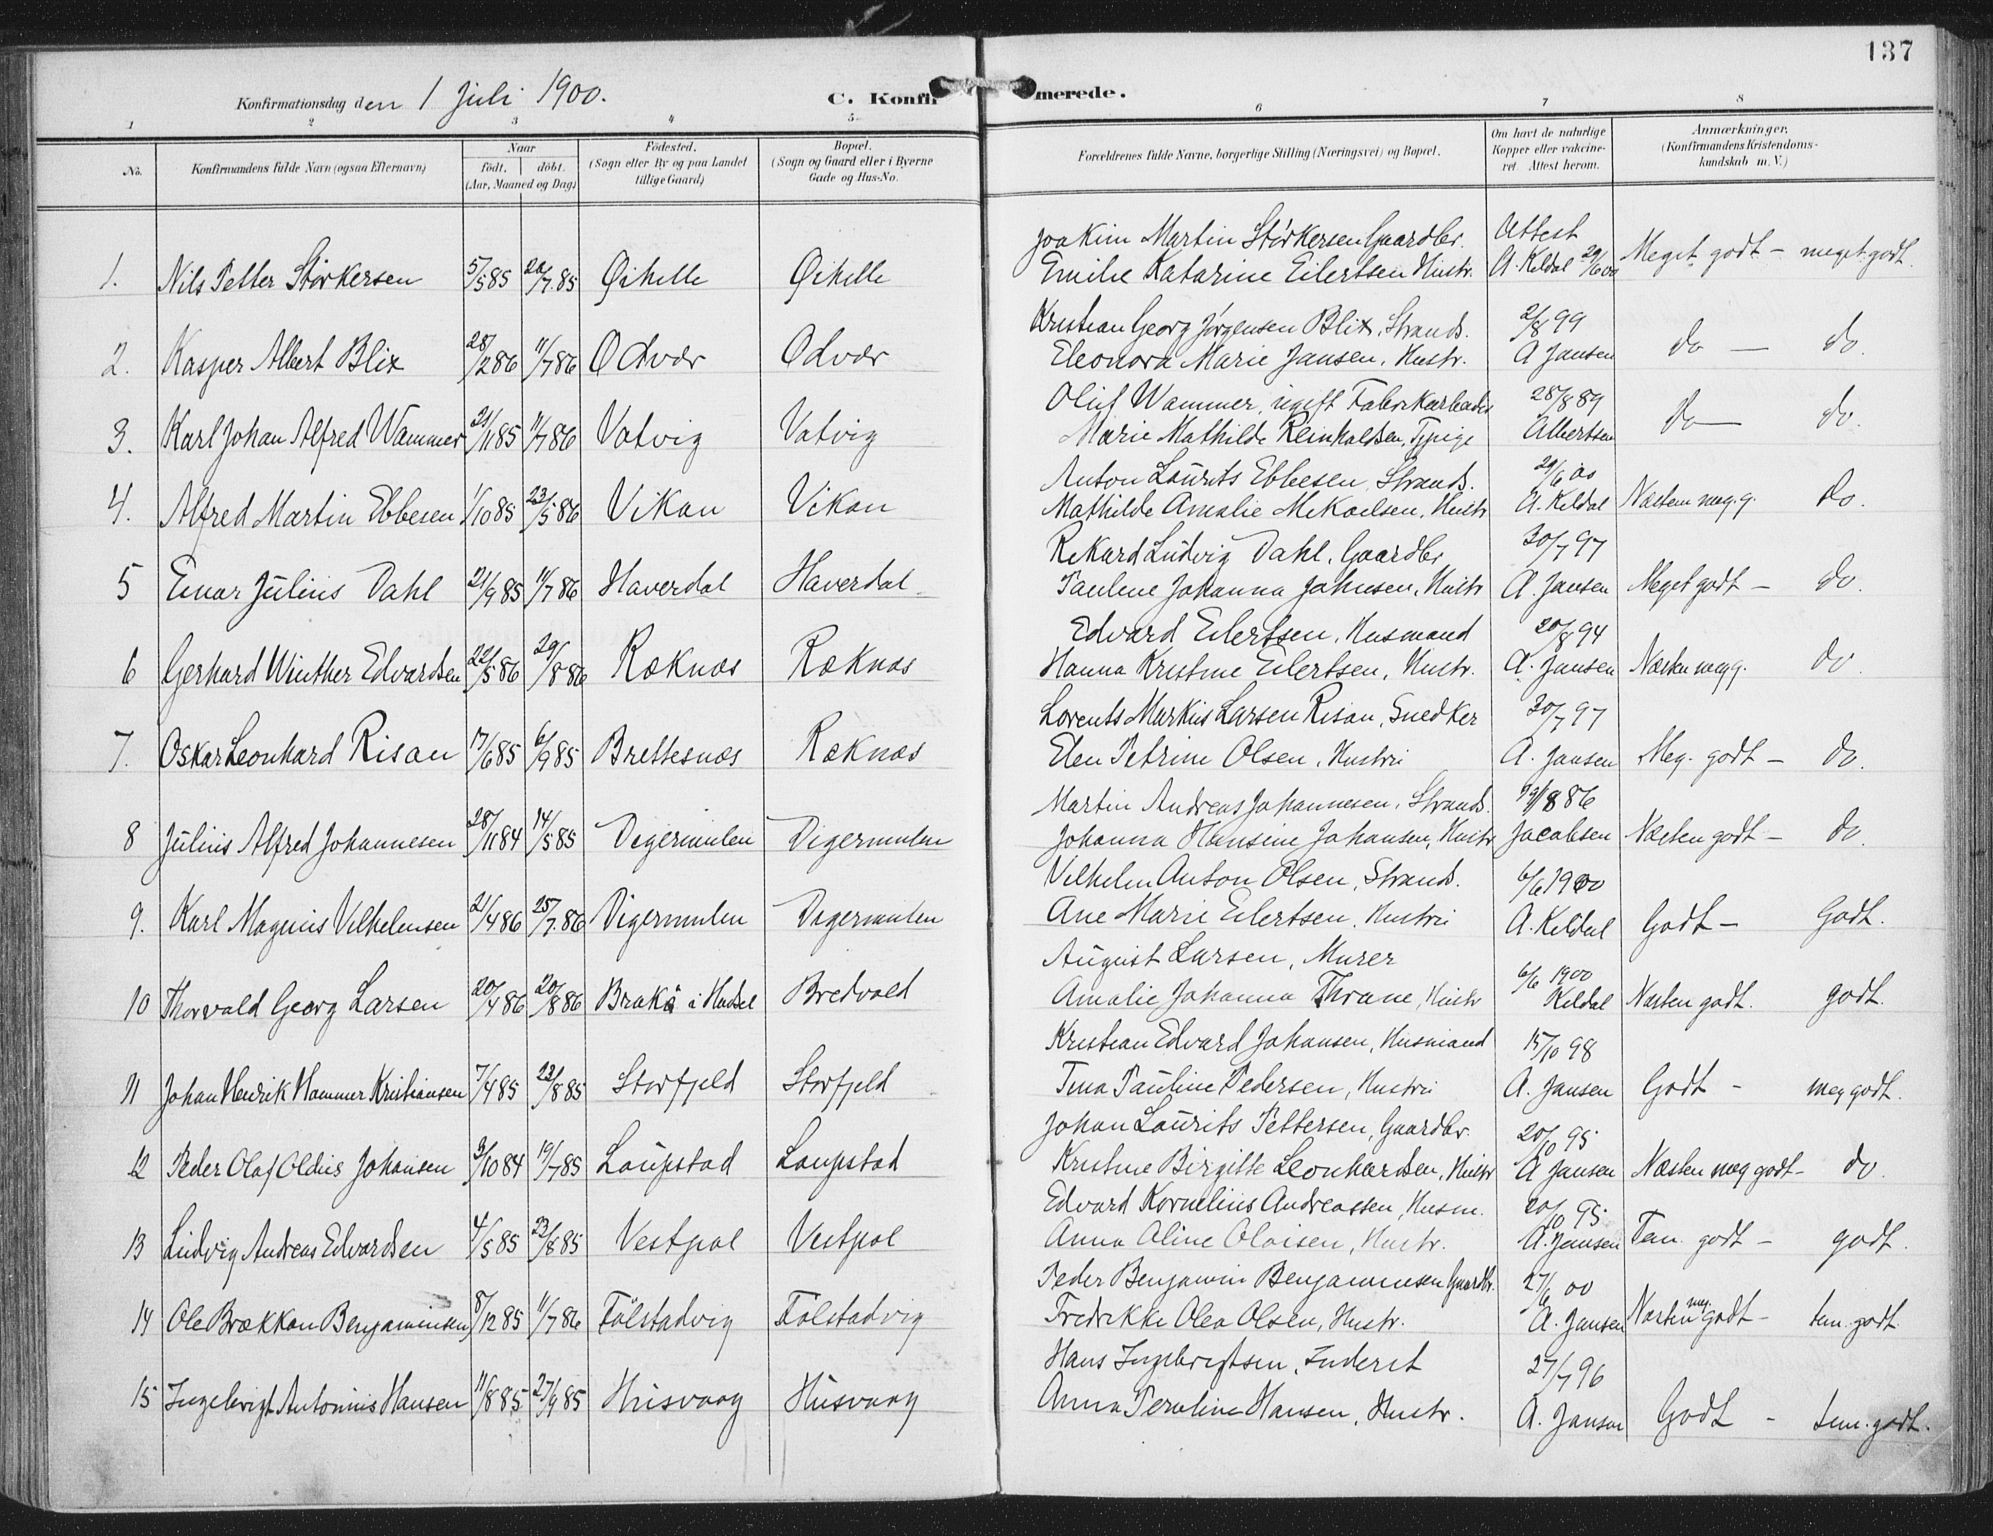 137
Konfirmationsdag den 1 Juli 1900.
C. Konfir merede.
1 2 3 4 5 6 7 8
No. Konfirmandens fulde Navn (ogsaa Efternavn) Naar født, døbt. (Aar, Maaned og Dag) Fødested. (Sogn eller By og paa Landet tillige Gaard) Bopæl. (Sogn og Gaard eller i Byerne Gade og Hus-No. Forældrenes fulde Navne, borgerlige Stilling (Næringsvei) og Bopæl. Om havt de naturlige Kopper eller vakcineret Attest herom. Anmærkninger, (Konfirmandens Kristendomskundskab m. V.)
Joakim Martin Størkersen Gaardbr. Attest
1. Nils Petter Størkersen 5/5 85 20/7.85 Øihelle Øihelle Emilie Katarine Eilertsen Hustr. A. Keldal 29/6 00 Meget godt – meget godt
Kristian Georg Jørgensen Blix, Strands. 2/8 99
2. Kasper Albert Blix 28/2 86 11/7 86 Odvær Odvær Eleonora Marie Jansen, Hustr. A Jansen do – do.
Oluf Wammer, ugift Fabrikarbeider 28/8 89
3. Karl Johan Alfred Wammer 21/11 85 11/7 86 Vatvig Vatvig Marie Mathilde Reinholdsen, Tjpige Albertsen do – do.
Anton Laurits Ebbesen, Strands. 29/6 00
4. Alfred Martin Ebbesen 1/10 85 23/5 86 Vikan Vikan Mathilde Amalie Mikaelsen, Hustr A. Keldal Næsten meg. g. do.
Rikard Ludvig Dahl, Gaardbr 30/7 97
5 Einar Julius Dahl 21/9 85 11/7 86 Haverdal Haverdal Pauline Johanna Johnsen, Hustr A. Jansen Meget godt – do.
Edvard Eilertsen, Husmand 20/8 94
6 Gerhard Winther Edvardsen 22/5 86 29/8 86 Ræknæs Ræknæs Hanna Kristine Eilertsen, Hustr. A. Jansen Næsten meg g. do.
Lorents Markus Larsen Risan, Snedker 30/7 97
7. Oskar Leonhard Risan 17/6 85 6/9 85 Brettesnæs Ræknæs Elen Petrine Olsen, Hustru A. Jansen Meg. godt – do.
Martin Andreas Johannesen, Strands. 19/8 86
8 Julius Alfred Johannesen 28/11 84 14/5 85 Digermulen Digermulen Johanna Hansine Johansen, Hustr Jacobsen Næsten godt – do.
Vilhelm Anton Olsen, Strands. 6/6 1900
9. Karl Magnus Vilhelmsen 21/4 86 25/7.86 Digermulen Digermulen Ane Marie Eilertsen, Hustru A. Keldal Godt – Godt.
August Larsen, Murer 6/6 1900
10 Thorvald Georg Larsen 20/4 86 20/8 86 i Hadsel Bredvold Amalie Johanna Thrane, Hustr Keldal Næsten godt. godt.
Kristian Edvard Johansen, Husmand 15/10 98
11 Johan Henrik Hammer Kristiansen 7/4 85 23/8 85 Storfjeld Storfjeld Tina Pauline Pedersen, Hustru A. Jansen Godt – meg godt.
Johan Laurits Pettersen, Gaardbr. 20/10 95
12 Peder Olaf Oldus Johansen 3/10 84 19/7 85 Laupstad Laupstad Kristine Birgitte Leonhardsen, Hustr A Jansen Næsten meg godt – do.
Edvard Kornelius Andreassen, Husm. 20/10 95
13 Ludvig Andreas Edvardsen 4/5 85 23/8 85 Vestpol Vestpol Anna Oline Olaisen, Hustr. A. Jansen Tem. godt – godt.
Peder Benjamin Benjaminsen Gaardbr. 27/6 00
14 Ole Brækkan Benjaminsen 8/12 85 11/7 86 Følstadvig Følstadvig Fredrikke Olea Olsen, Hustr. A. Jansen Næsten meg. godt – tem. godt.
Hans Ingebrigtsen, Inderst 27/7 96
15 Ingebrigt Antonius Hansen 11/8 85 27/9 85 Husvaag Husvaag Anna Peroline Hansen, Hustr. A. Jansen Godt – tem. godt.